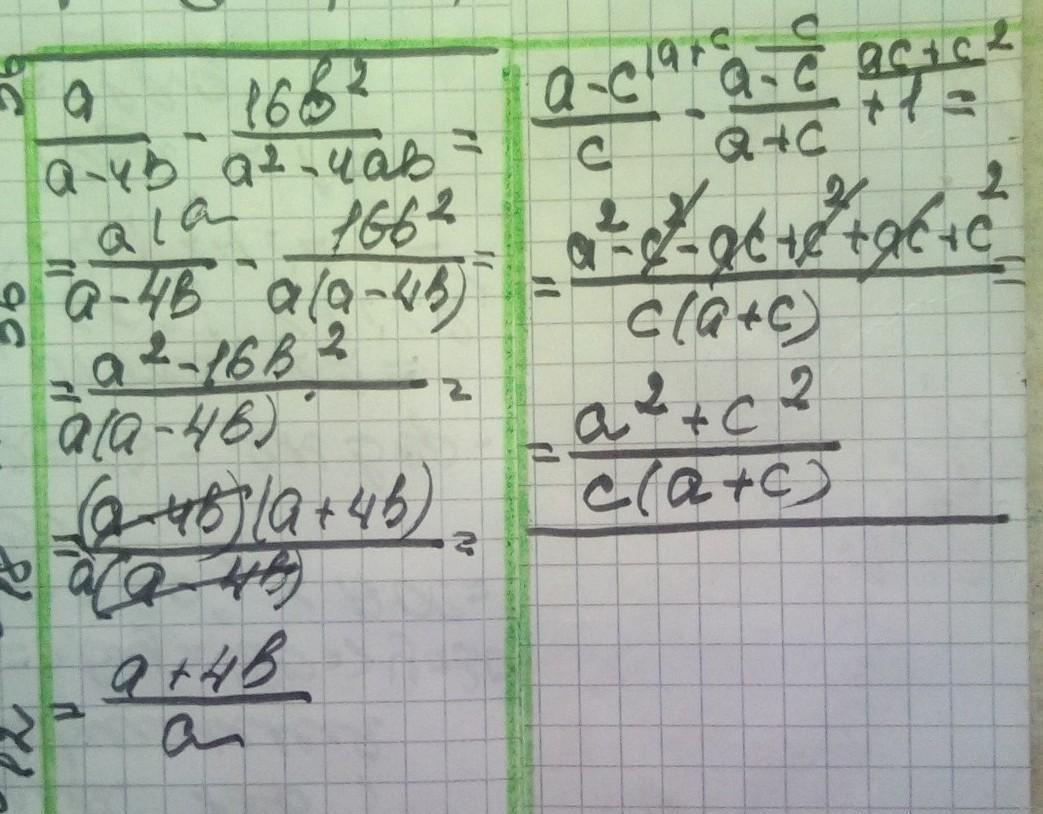 a/(a-4b) - 16b²/(a²-4ab) =
= a\a/(a-4b) - 16b²/(a(a-4b)) =
= (a²-16b²)/(a(a-4b)) =
= (a-4b)(a+4b)/(a(a-4b)) =
= (a+4b)/a
(a-c)/c \a+c - (a-c)/(a+c) \c + 1 \ac+c² =
= (a²-c²-ac+c²+ac+c²)/(c(a+c)) =
= (a²+c²)/(c(a+c))